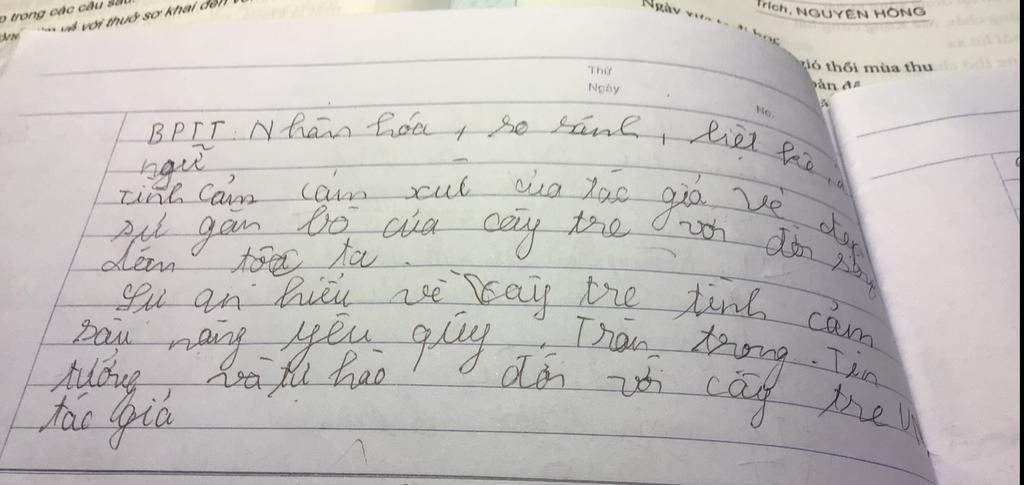 o trong các câu sau
về với thuở sơ khai đến
Ngày
học
Trích, NGUYÊN HỒNG
gió thổi mùa thu
bản đ
Thứ
Ngày
No.
BPTT: Nhân hóa, so sánh, liệt kê,
ngữ
tình cảm cảm xúc của tác giả vẻ đẹp
sự gắn bó của cây tre với đời sống
dân tộc ta.
Sự am hiểu về cây tre tình cảm
sâu nặng yêu qúy. Trân trọng. Tin
tưởng và tự hào đối với cây tre VN
tác giả